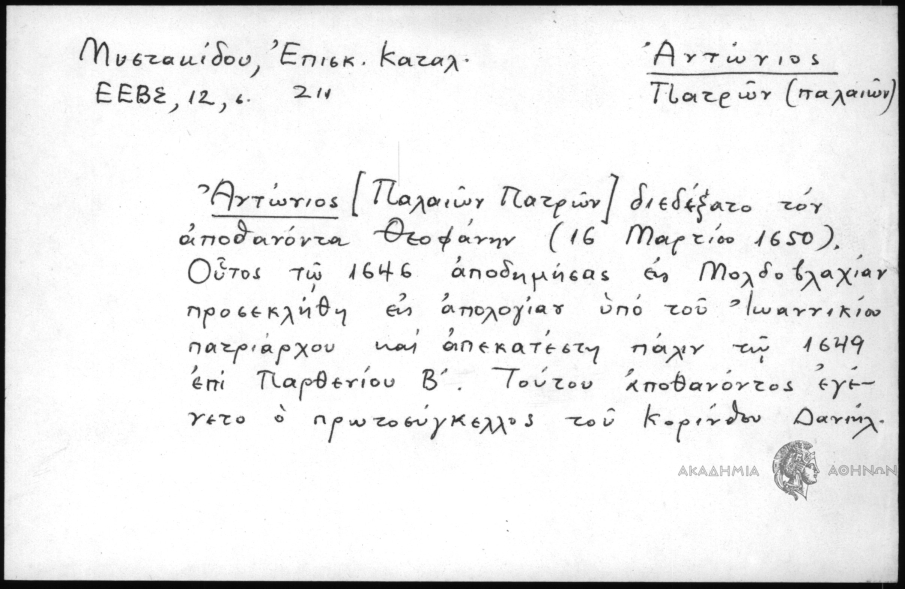 Μυστακίδου, Ἐπισκ. Καταλ.
Ἀντώνιος
ΕΕΒΣ, 12, σ. 211
Πατρῶν (παλαιῶν)
Ἀντώνιος [Παλαιῶν Πατρῶν] διεδέξατο τόν
ἀποθανόντα Θεοφάνην (16 Μαρτίου 1650).
Οὗτος τῷ 1646 ἀποδημήσας εἰς Μολδοβλαχίαν
προσεκλήθη εἰς ἀπολογίαν ὑπό τοῦ Ἰωαννικίου
πατριάρχου καί ἀπεκατέστη πάλιν τῷ 1649
ἐπί Παρθενίου Β΄. Τούτου ἀποθανόντος ἐγέ-
νετο ὁ πρωτοσύγκελλος τοῦ Κορίνθου Δανιήλ.
ΑΚΑΔΗΜΙΑ ΑΘΗΝΩΝ